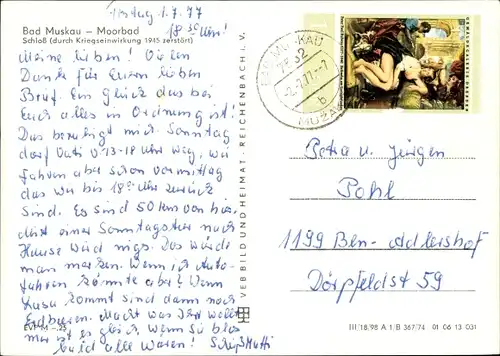 Freitag 1.7.77
18 30 Uhr!
Bad Muskau – Moorbad
Schloß (durch Kriegseinwirkung 1945 zerstört)
Meine lieben! Vielen
Dank für Euren lieben
Brief. Ein Glück das bei
Euch alles in Ordnung ist!
Das beruhigt mich. Sonntag
darf Vati v. 13-18 Uhr weg, wir
fahren aber schon vormittag
das wir bis 18 Uhr zurück
sind. Es sind 50 km von hier,
mit einer Sonntagstour nach
Hause wird nigs. Das würde
man merken. Wenn ich Auto-
fahren könnte aber? Wenn
kommt sind dann noch
Erdbeeren. Macht was Ihr wollt
mir ist es gleich, wenn sie blos
bald alle wären! Mutti
EVP M –,25
VEB BILD UND HEIMAT · REICHENBACH I. V.
BAD MUSKAU
7582
-2.7.77-7
b
MUŽAKOW
Petra u. Jürgen
Pohl
1199 Bln.-Adlershof
Dörpfeldst 59
III/18/98 A 1/B 367/74 01 06 13 031